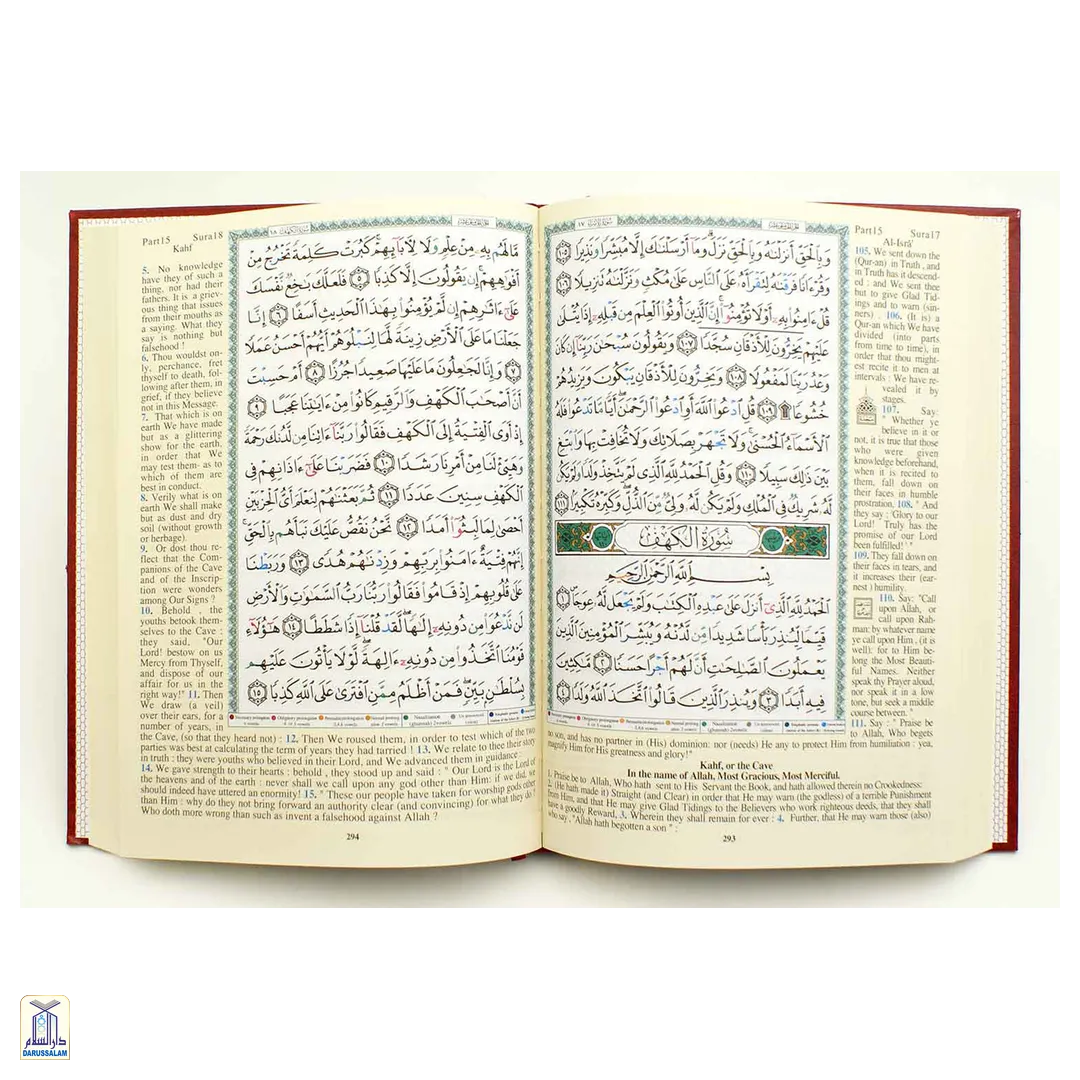 Part15 Sura17
Al-Isrâ'
105. We sent down the
(Qur-an) in Truth , and
in Truth has it descend-
ed : and We sent thee
but to give Glad Tid-
ings and to warn (sin-
ners) . 106. (It is) a
Qur-an which We have
divided (into parts
from time to time), in
order that thou might-
est recite it to men at
intervals : We have re-
vealed it by
stages.
107. Say:
" Whether ye
believe in it or
not, it is true that those
who were given
knowledge beforehand,
when it is recited to
them, fall down on
their faces in humble
prostration, 108. " And
they say : 'Glory to our
Lord! Truly has the
promise of our Lord
been fulfilled!' "
109. They fall down on
their faces in tears, and
it increases their (ear-
nest ) humility.
110. Say: "Call
upon Allah, or
call upon Rah-
man: by whatever name
ye call upon Him , (it is
well): for to Him be-
long the Most Beauti-
ful Names. Neither
speak thy Prayer aloud,
nor speak it in a low
tone, but seek a middle
course between."
111. Say : " Praise be
to Allah, Who begets
وَبِٱلْحَقِّ أَنزَلْنَٰهُ وَبِٱلْحَقِّ نَزَلَ وَمَآ أَرْسَلْنَٰكَ إِلَّا مُبَشِّرًا وَنَذِيرًا ١٠٥
وَقُرْءَانًا فَرَقْنَٰهُ لِتَقْرَأَهُۥ عَلَى ٱلنَّاسِ عَلَىٰ مُكْثٍ وَنَزَّلْنَٰهُ تَنزِيلًا ١٠٦
قُلْ ءَامِنُوا۟ بِهِۦٓ أَوْ لَا تُؤْمِنُوٓا۟ إِنَّ ٱلَّذِينَ أُوتُوا۟ ٱلْعِلْمَ مِن قَبْلِهِۦٓ إِذَا يُتْلَىٰ
عَلَيْهِمْ يَخِرُّونَ لِلْأَذْقَانِ سُجَّدًا ١٠٧ وَيَقُولُونَ سُبْحَٰنَ رَبِّنَآ إِن كَانَ
وَعْدُ رَبِّنَا لَمَفْعُولًا ١٠٨ وَيَخِرُّونَ لِلْأَذْقَانِ يَبْكُونَ وَيَزِيدُهُمْ
خُشُوعًا ۩ ١٠٩ قُلِ ٱدْعُوا۟ ٱللَّهَ أَوِ ٱدْعُوا۟ ٱلرَّحْمَٰنَ أَيًّا مَّا تَدْعُوا۟ فَلَهُ
ٱلْأَسْمَآءُ ٱلْحُسْنَىٰ وَلَا تَجْهَرْ بِصَلَاتِكَ وَلَا تُخَافِتْ بِهَا وَٱبْتَغِ
بَيْنَ ذَٰلِكَ سَبِيلًا ١١٠ وَقُلِ ٱلْحَمْدُ لِلَّهِ ٱلَّذِى لَمْ يَتَّخِذْ وَلَدًا وَلَمْ يَكُن
لَّهُۥ شَرِيكٌ فِى ٱلْمُلْكِ وَلَمْ يَكُن لَّهُۥ وَلِىٌّ مِّنَ ٱلذُّلِّ وَكَبِّرْهُ تَكْبِيرًا ١١١
سُورَةُ الْكَهْفِ
بِسْمِ ٱللَّهِ ٱلرَّحْمَٰنِ ٱلرَّحِيمِ
ٱلْحَمْدُ لِلَّهِ ٱلَّذِىٓ أَنزَلَ عَلَىٰ عَبْدِهِ ٱلْكِتَٰبَ وَلَمْ يَجْعَل لَّهُۥ عِوَجَا ١
قَيِّمًا لِّيُنذِرَ بَأْسًا شَدِيدًا مِّن لَّدُنْهُ وَيُبَشِّرَ ٱلْمُؤْمِنِينَ ٱلَّذِينَ
يَعْمَلُونَ ٱلصَّٰلِحَٰتِ أَنَّ لَهُمْ أَجْرًا حَسَنًا ٢ مَّٰكِثِينَ
فِيهِ أَبَدًا ٣ وَيُنذِرَ ٱلَّذِينَ قَالُوا۟ ٱتَّخَذَ ٱللَّهُ وَلَدًا ٤
no son, and has no partner in (His) dominion: nor (needs) He any to protect Him from humiliation : yea,
magnify Him for His greatness and glory!"
Kahf, or the Cave
In the name of Allah, Most Gracious, Most Merciful.
1. Praise be to Allah, Who hath sent to His Servant the Book, and hath allowed therein no Crookedness:
2. (He hath made it) Straight (and Clear) in order that He may warn (the godless) of a terrible Punishment
from Him, and that He may give Glad Tidings to the Believers who work righteous deeds, that they shall
have a goodly Reward, 3. Wherein they shall remain for ever : 4. Further, that He may warn those (also)
who say , "Allah hath begotten a son " :
293
Part15 Sura18
Kahf
5. No knowledge
have they of such a
thing, nor had their
fathers. It is a griev-
ous thing that issues
from their mouths as
a saying. What they
say is nothing but
falsehood !
6. Thou wouldst on-
ly, perchance, fret
thyself to death, fol-
lowing after them, in
grief, if they believe
not in this Message.
7. That which is on
earth We have made
but as a glittering
show for the earth,
in order that We
may test them- as to
which of them are
best in conduct.
8. Verily what is on
earth We shall make
but as dust and dry
soil (without growth
or herbage).
9. Or dost thou re-
flect that the Com-
panions of the Cave
and of the Inscrip-
tion were wonders
among Our Signs ?
10. Behold , the
youths betook them-
selves to the Cave :
they said, "Our
Lord! bestow on us
Mercy from Thyself,
and dispose of our
affair for us in the
right way!" 11. Then
We draw (a veil)
over their ears, for a
number of years, in
مَّا لَهُم بِهِۦ مِنْ عِلْمٍ وَلَا لِءَابَآئِهِمْ كَبُرَتْ كَلِمَةً تَخْرُجُ مِنْ
أَفْوَٰهِهِمْ إِن يَقُولُونَ إِلَّا كَذِبًا ٥ فَلَعَلَّكَ بَٰخِعٌ نَّفْسَكَ
عَلَىٰٓ ءَاثَٰرِهِمْ إِن لَّمْ يُؤْمِنُوا۟ بِهَٰذَا ٱلْحَدِيثِ أَسَفًا ٦ إِنَّا
جَعَلْنَا مَا عَلَى ٱلْأَرْضِ زِينَةً لَّهَا لِنَبْلُوَهُمْ أَيُّهُمْ أَحْسَنُ عَمَلًا
٧ وَإِنَّا لَجَٰعِلُونَ مَا عَلَيْهَا صَعِيدًا جُرُزًا ٨ أَمْ حَسِبْتَ
أَنَّ أَصْحَٰبَ ٱلْكَهْفِ وَٱلرَّقِيمِ كَانُوا۟ مِنْ ءَايَٰتِنَا عَجَبًا ٩
إِذْ أَوَى ٱلْفِتْيَةُ إِلَى ٱلْكَهْفِ فَقَالُوا۟ رَبَّنَآ ءَاتِنَا مِن لَّدُنكَ رَحْمَةً
وَهَيِّئْ لَنَا مِنْ أَمْرِنَا رَشَدًا ١٠ فَضَرَبْنَا عَلَىٰٓ ءَاذَانِهِمْ فِى
ٱلْكَهْفِ سِنِينَ عَدَدًا ١١ ثُمَّ بَعَثْنَٰهُمْ لِنَعْلَمَ أَىُّ ٱلْحِزْبَيْنِ
أَحْصَىٰ لِمَا لَبِثُوٓا۟ أَمَدًا ١٢ نَّحْنُ نَقُصُّ عَلَيْكَ نَبَأَهُم بِٱلْحَقِّ
إِنَّهُمْ فِتْيَةٌ ءَامَنُوا۟ بِرَبِّهِمْ وَزِدْنَٰهُمْ هُدًى ١٣ وَرَبَطْنَا
عَلَىٰ قُلُوبِهِمْ إِذْ قَامُوا۟ فَقَالُوا۟ رَبُّنَا رَبُّ ٱلسَّمَٰوَٰتِ وَٱلْأَرْضِ
لَن نَّدْعُوَا۟ مِن دُونِهِۦٓ إِلَٰهًا لَّقَدْ قُلْنَآ إِذًا شَطَطًا ١٤ هَٰٓؤُلَآءِ
قَوْمُنَا ٱتَّخَذُوا۟ مِن دُونِهِۦٓ ءَالِهَةً لَّوْلَا يَأْتُونَ عَلَيْهِم
بِسُلْطَٰنٍۭ بَيِّنٍ فَمَنْ أَظْلَمُ مِمَّنِ ٱفْتَرَىٰ عَلَى ٱللَّهِ كَذِبًا ١٥
the Cave, (so that they heard not) : 12. Then We roused them, in order to test which of the two
parties was best at calculating the term of years they had tarried ! 13. We relate to thee their story
in truth : they were youths who believed in their Lord, and We advanced them in guidance :
14. We gave strength to their hearts : behold , they stood up and said : " Our Lord is the Lord of
the heavens and of the earth : never shall we call upon any god other than Him: if we did, we
should indeed have uttered an enormity! 15. " These our people have taken for worship gods other
than Him : why do they not bring forward an authority clear (and convincing) for what they do ?
Who doth more wrong than such as invent a falsehood against Allah ?
294
دارالسلام
DARUSSALAM